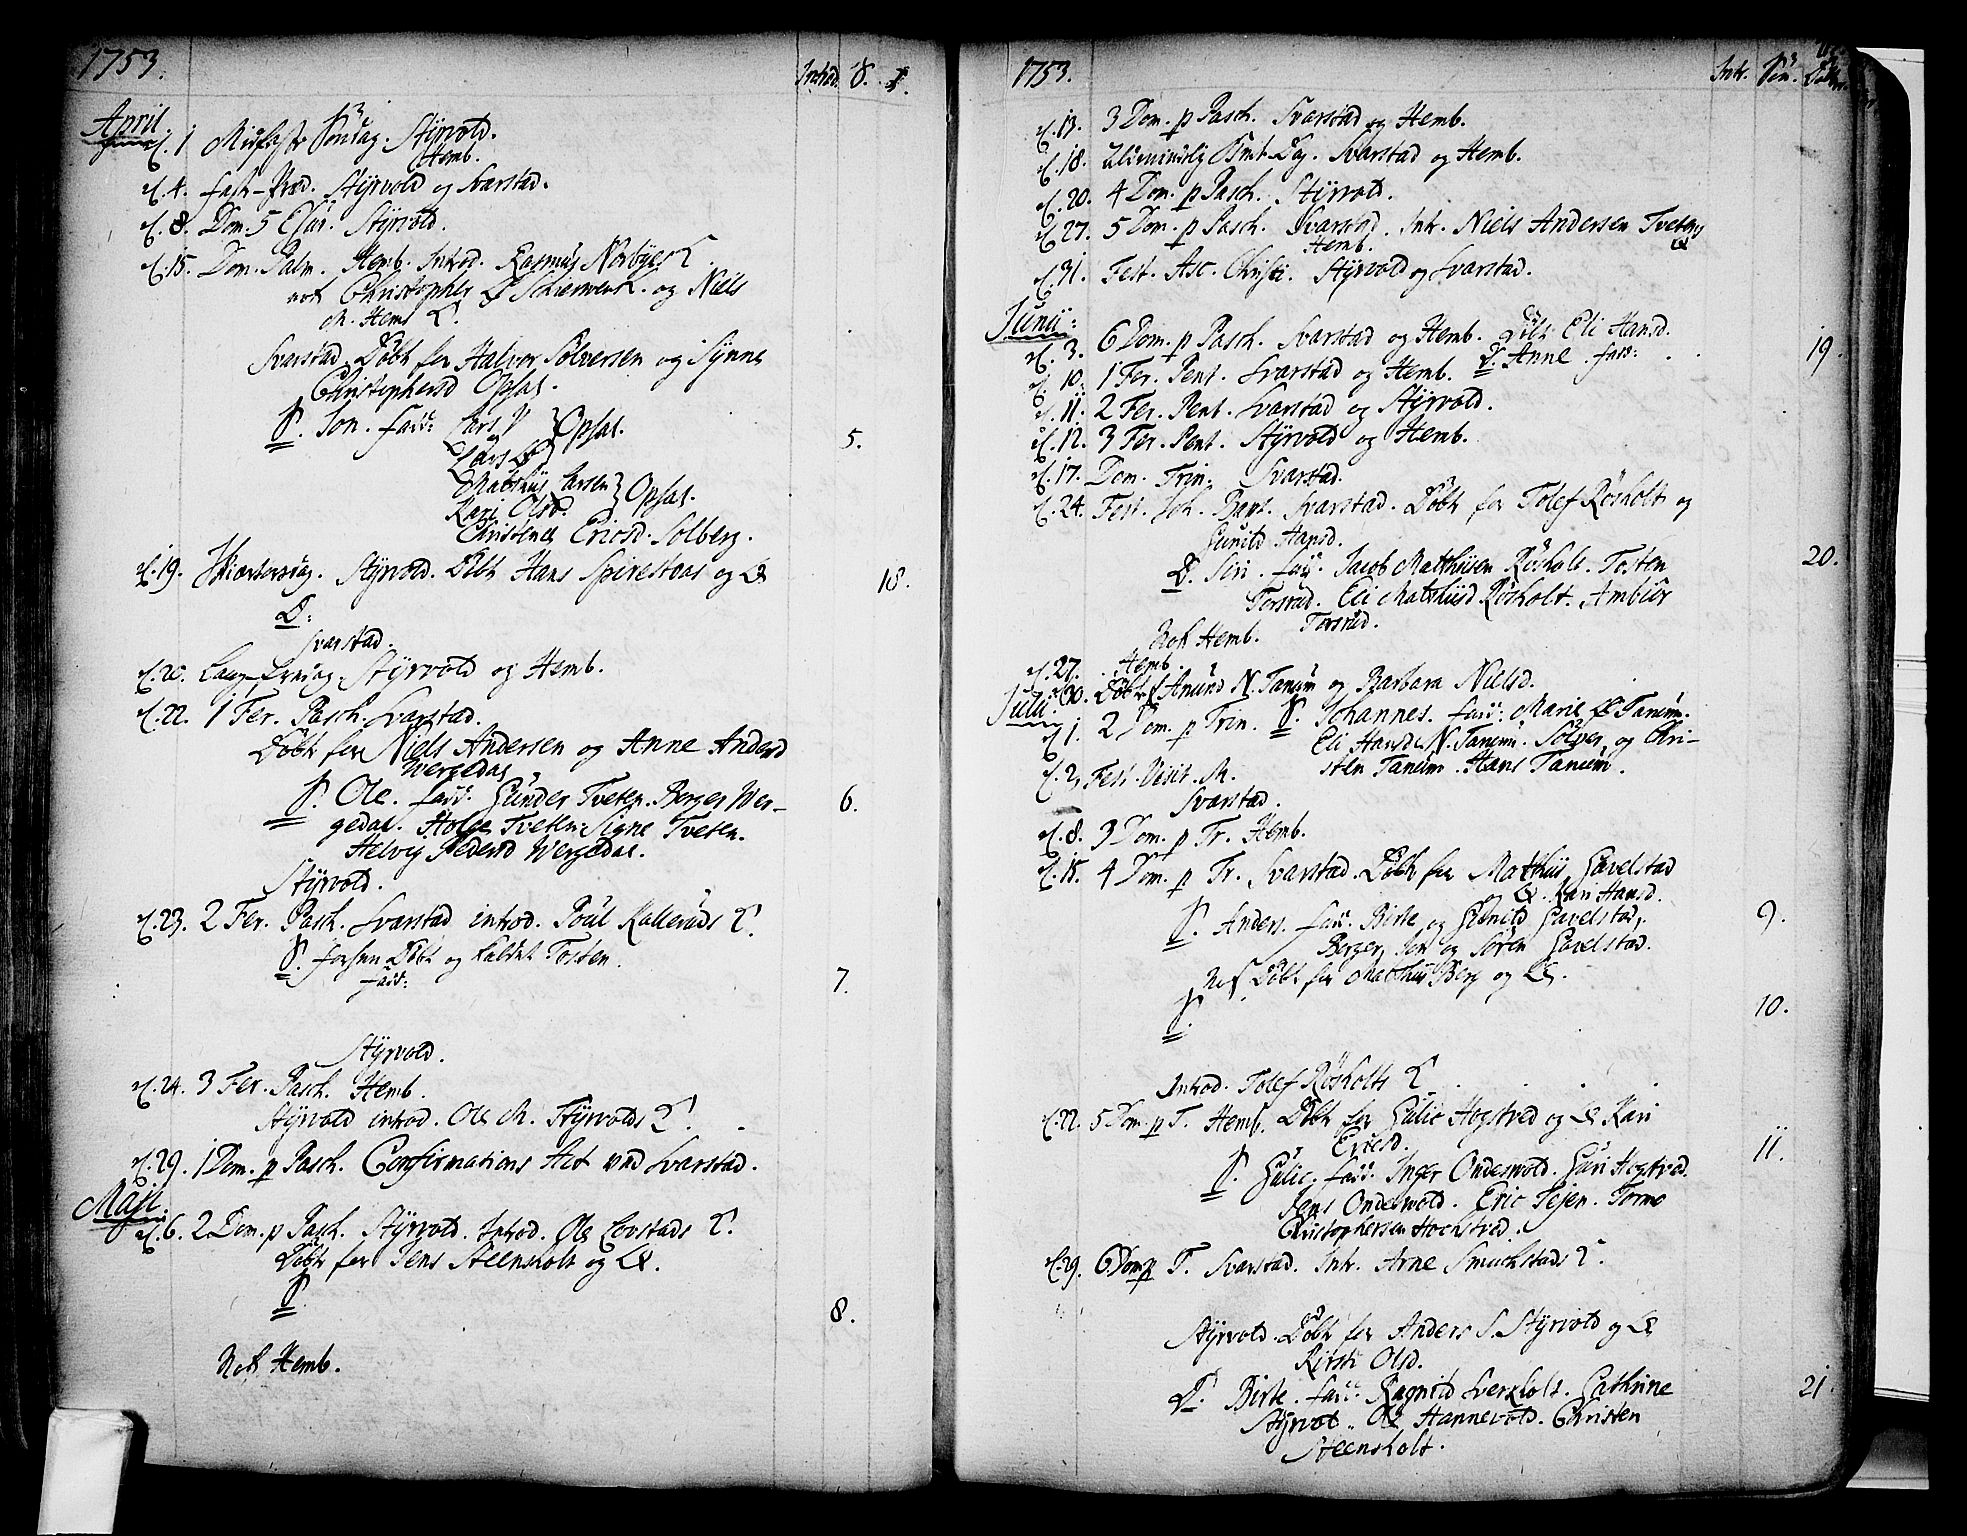 1753.
Introd. S. D.
April.
d. 1 Midfaste Søndag. Styrvold.
Hemb.
d. 4. fast-Præd. Styrvold og Svarstad.
d. 8. Dom. 5 Qvar. Styrvold.
d. 15. Dom. Palm. Hemb. Introd. Rasmus Norbyes
Christopher Schierwerk. og Niels
M. Hems
Svarstad. Døbt for Halvor Solversen og Synne
Christophersd Opsal.
S. Jon. Fadd: Lars
Opsal.
Lars
Matthiis Larsen
Opsal.
Kari Olsd.
Christense Ericsd. Solberg.
5.
d. 19. Skiærtorsdag. Styrvold. Døbt Hans Spirestoas og
18.
D:
Svarstad.
d. 20. Lang-fredag. Styrvold og Hemb.
d. 22. 1 Fer. Pasch. Svarstad.
Døbt for Niels Andersen og Anne Andersd
Wergedal
S. Ole. fadd: Gunder Tveten. Borger Wer-
6.
gedal. Holge Tveten. Signe Tveten.
Helvig Pedersd Wergedal.
Styrvold.
d. 23. 2 Fer. Pasch. Svarstad introd. Poul Kalleruds
S. Døbt og kaldet Tosten.
fadd:
7.
Styrvold.
d. 24. 3 Fer. Pasch. Hemb.
Styrvold introd. Ole M. Styrvolds
d. 29. 1 Dom. p Pasch. Confirmations Act ved Svarstad.
Maji.
d. 6. 2 Dom. p Pasch. Styrvold. Introd. Ole Lovstads
Døbt for Jens Steensholt og
S.
8.
Not. Hemb.
1753.
Intr. Søn. Døttr.
d. 13. 3 Dom. p Pasch. Svarstad og Hemb.
d. 18. Almindelig Bmt. Dag. Svarstad og Hemb.
d. 20. 4 Dom. p Pasch. Styrvold.
d. 27. 5 Dom. p Pasch. Svarstad. Intr. Niels Andersen Tvetens
Hemb.
d. 31. Fest. Asc. Christi. Styrvold og Svarstad.
Junii:
d. 3. 6 Dom. p Pasch. Svarstad og Hemb. Døbt Eli Hansd.
D. Anne. fadd:
19.
d. 10. 1 Fer. Pent. Svarstad og Hemb.
d. 11. 2 Fer. Pent. Svarstad og Styrvold.
d. 12. 3 Fer. Pent. Styrvold og Hemb.
d. 17. Dom. Trin. Svarstad.
d. 24. Fest. Joh. Bapt. Svarstad. Døbt for Tolef Røsholt og
Gunild Hansd.
D. Siri. fadd: Jacob Matthisen Røsholt. Tosten
20.
Torsrud. Eli Matthiisd Røsholt. Ambiør
Torsrud.
Not Hemb.
d. 27. Hemb.
d. 30. Døbt f Amund N. Tanum og Barbara Nielsd.
Julii
d. 1. 2 Dom. p Trin. S. Johannes. fadd: Marie Tanum.
Eli Hansd N. Tanum. Solver og Chri-
sten Tanum. Hans Tanum.
d. 2. Fest. Visit. M.
Svarstad.
d. 8. 3 Dom. p Tr. Hemb.
d. 15. 4 Dom. p Tr. Svarstad. Døbt for Matthiis Gavelstad
Kari Hansd.
S. Anders. fadd: Birte og Gunild Gavelstad,
9.
Borger, Jon og Søren Gavelstad.
Døbt for Matthiis Berg og
S.
10.
Introd. Tolef Røsholts
d. 22. 5 Dom. p T. Hemb. Døbt for Gulic Hogstved og Kari
Ericsd.
S. Gulic. fadd: Inger Onderwold. Guri Hogstved.
11.
Jens Onderwold. Eric Tejen. Tormo
Christophersen Hochstved.
d. 29. 6 Dom p T. Svarstad. Intr. Arne Smuchstads
Styrvold. Døbt for Anders S. Styrvold og
Kirsti Olsd.
D. Birte. fadd: Ragnild Sverkholt. Cathrine
21.
Styrvol. Ole Hannevold. Christen
Steensholt.